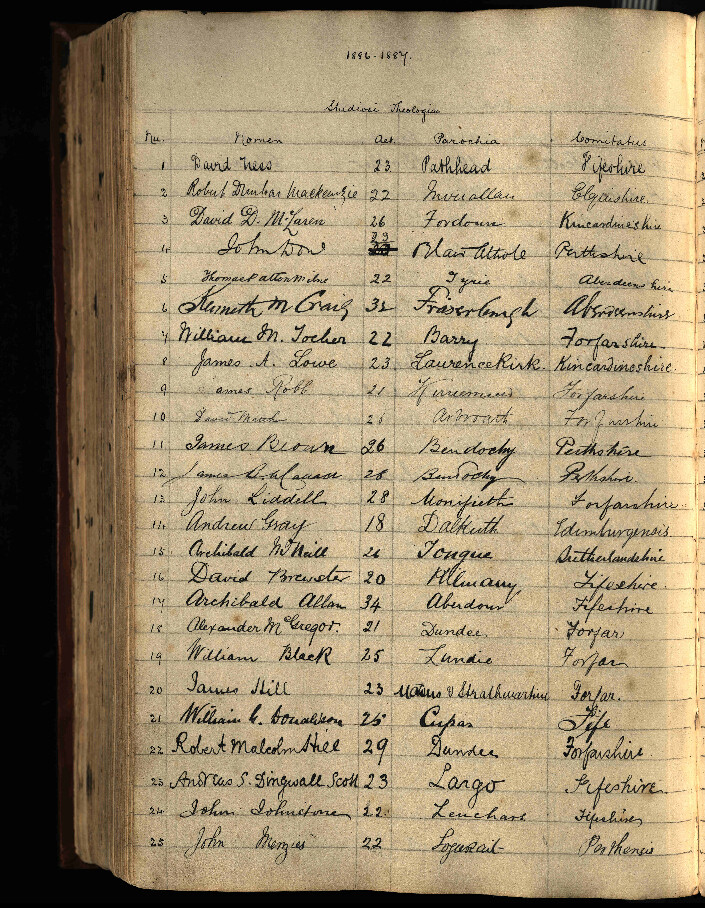 1886-1887.
Studiosi Theologiae
No. Nomen Aet. Parochia Comitatus
1 David Ness 23 Pathhead Fifeshire
2 Robert Dunbar Mackenzie 22 Inverallan Elginshire
3 David D. McLaren 26 Fordoun Kincardineshire
23
4 John Dow Blair Athole Perthshire
5 Thomas Patton Milne 22 Tyrie Aberdeenshire
6 Kenneth M Craig 32 Fraserburgh Aberdeenshire
7 William M. Tocher 22 Barry Forfarshire
8 James A. Lowe 23 Laurencekirk. Kincardineshire.
9 James Robb 21 Kirriemuir Forfarshire
10 David 26 Arbroath Forfarshire
11 James Brown 26 Bendochy Perthshire
12 James 26 Bendochy Perthshire
13 John Liddell 28 Monifieth Forfarshire
14 Andrew Gray 18 Dalkeith Edinburgensis
15 Archibald McNeill 26 Tongue Sutherlandshire
16 David Brewster 20 Kilmany Fifeshire.
17 Archibald Allan 34 Aberdour Fifeshire
18 Alexander McGregor. 21 Dundee. Forfar
19 William Black 25 Lundie Forfar
20 James Hill 23 Mains & Strathmartine Forfar.
21 William G. Donaldson 25 Cupar Fife
22 Robert Malcolm Hill 29 Dundee Forfarshire.
23 Andreas S. Dingwall Scott 23 Largo Fifeshire.
24 John Johnstone 22 Leuchars Fifeshire
25 John Menzies 22 Logierait Perthensis